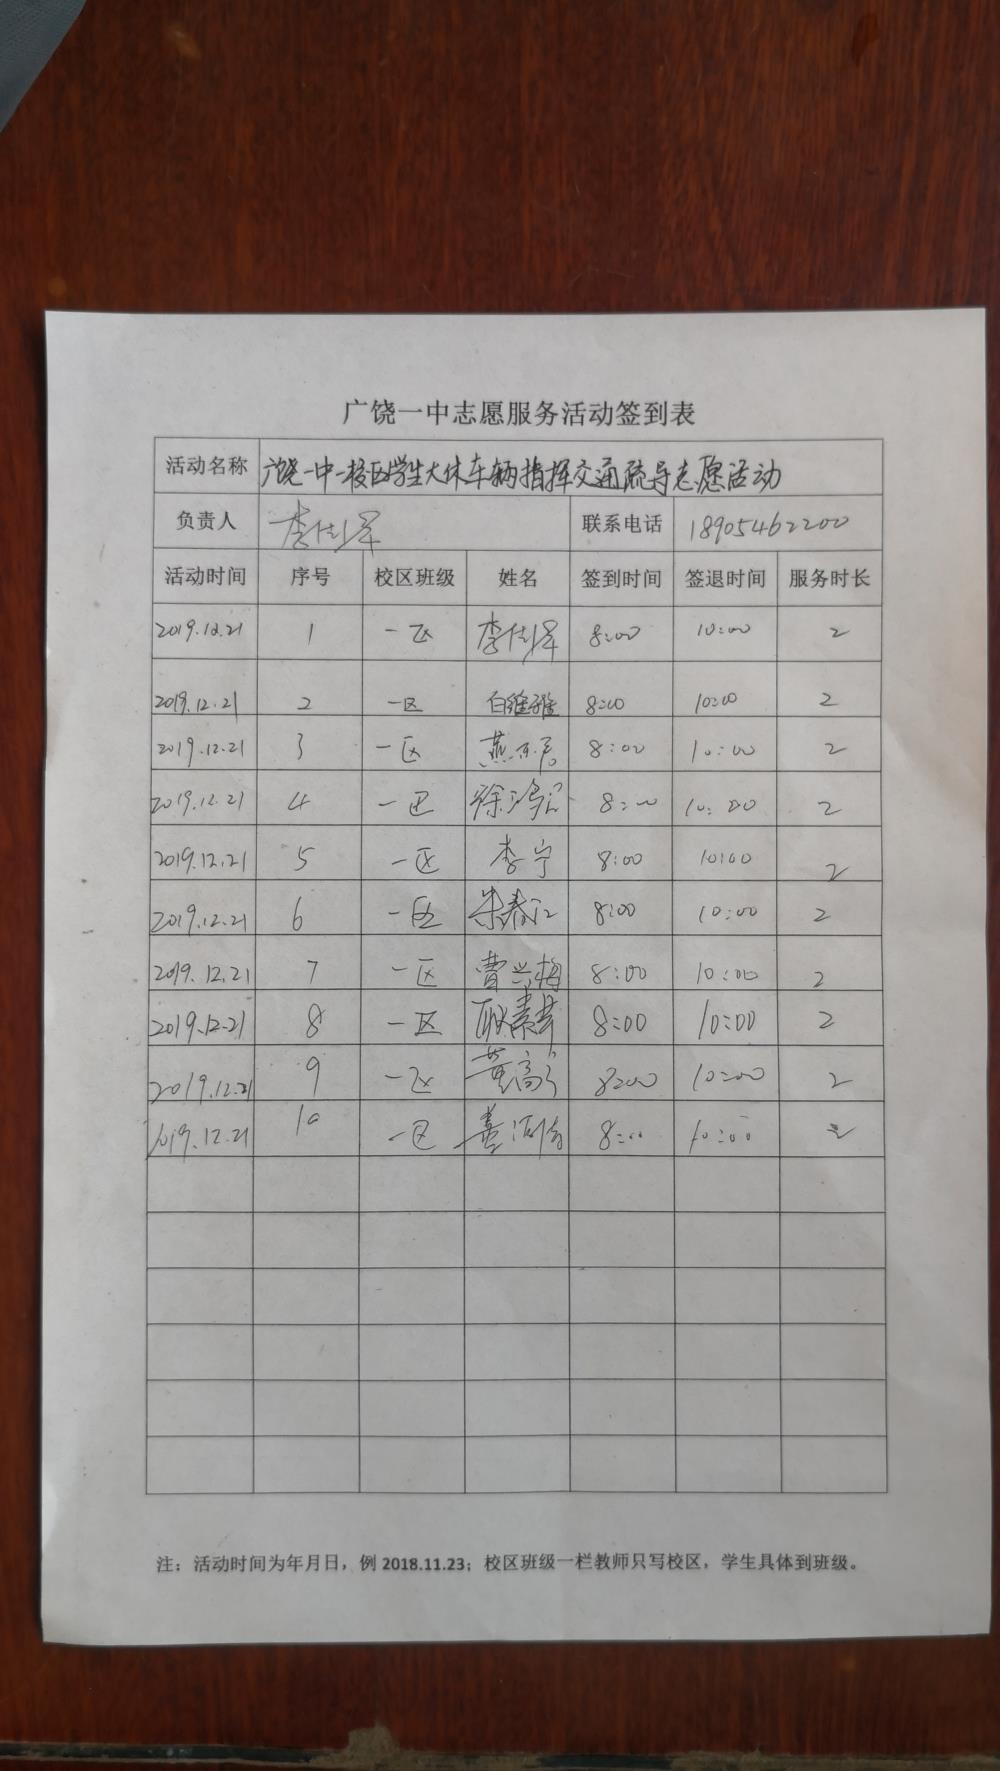 广饶一中志愿服务活动签到表
活动名称 广饶一中一校区学生大休车辆指挥交通疏导志愿活动
负责人 李 联系电话 18905462200
活动时间 序号 校区班级 姓名 签到时间 签退时间 服务时长
2019.12.21 1 一区 李 8:00 10:00 2
2019.12.21 2 一区 白维雅 8:00 10:00 2
2019.12.21 3 一区 燕 8:00 10:00 2
2019.12.21 4 一区 徐 8:00 10:00 2
2019.12.21 5 一区 李宁 8:00 10:00 2
2019.12.21 6 一区 朱春江 8:00 10:00 2
2019.12.21 7 一区 曹兴梅 8:00 10:00 2
2019.12.21 8 一区 耿素芹 8:00 10:00 2
2019.12.21 9 一区 黄 8:00 10:00 2
2019.12.21 10 一区 8:00 10:00 2
注：活动时间为年月日，例 2018.11.23；校区班级一栏教师只写校区，学生具体到班级。